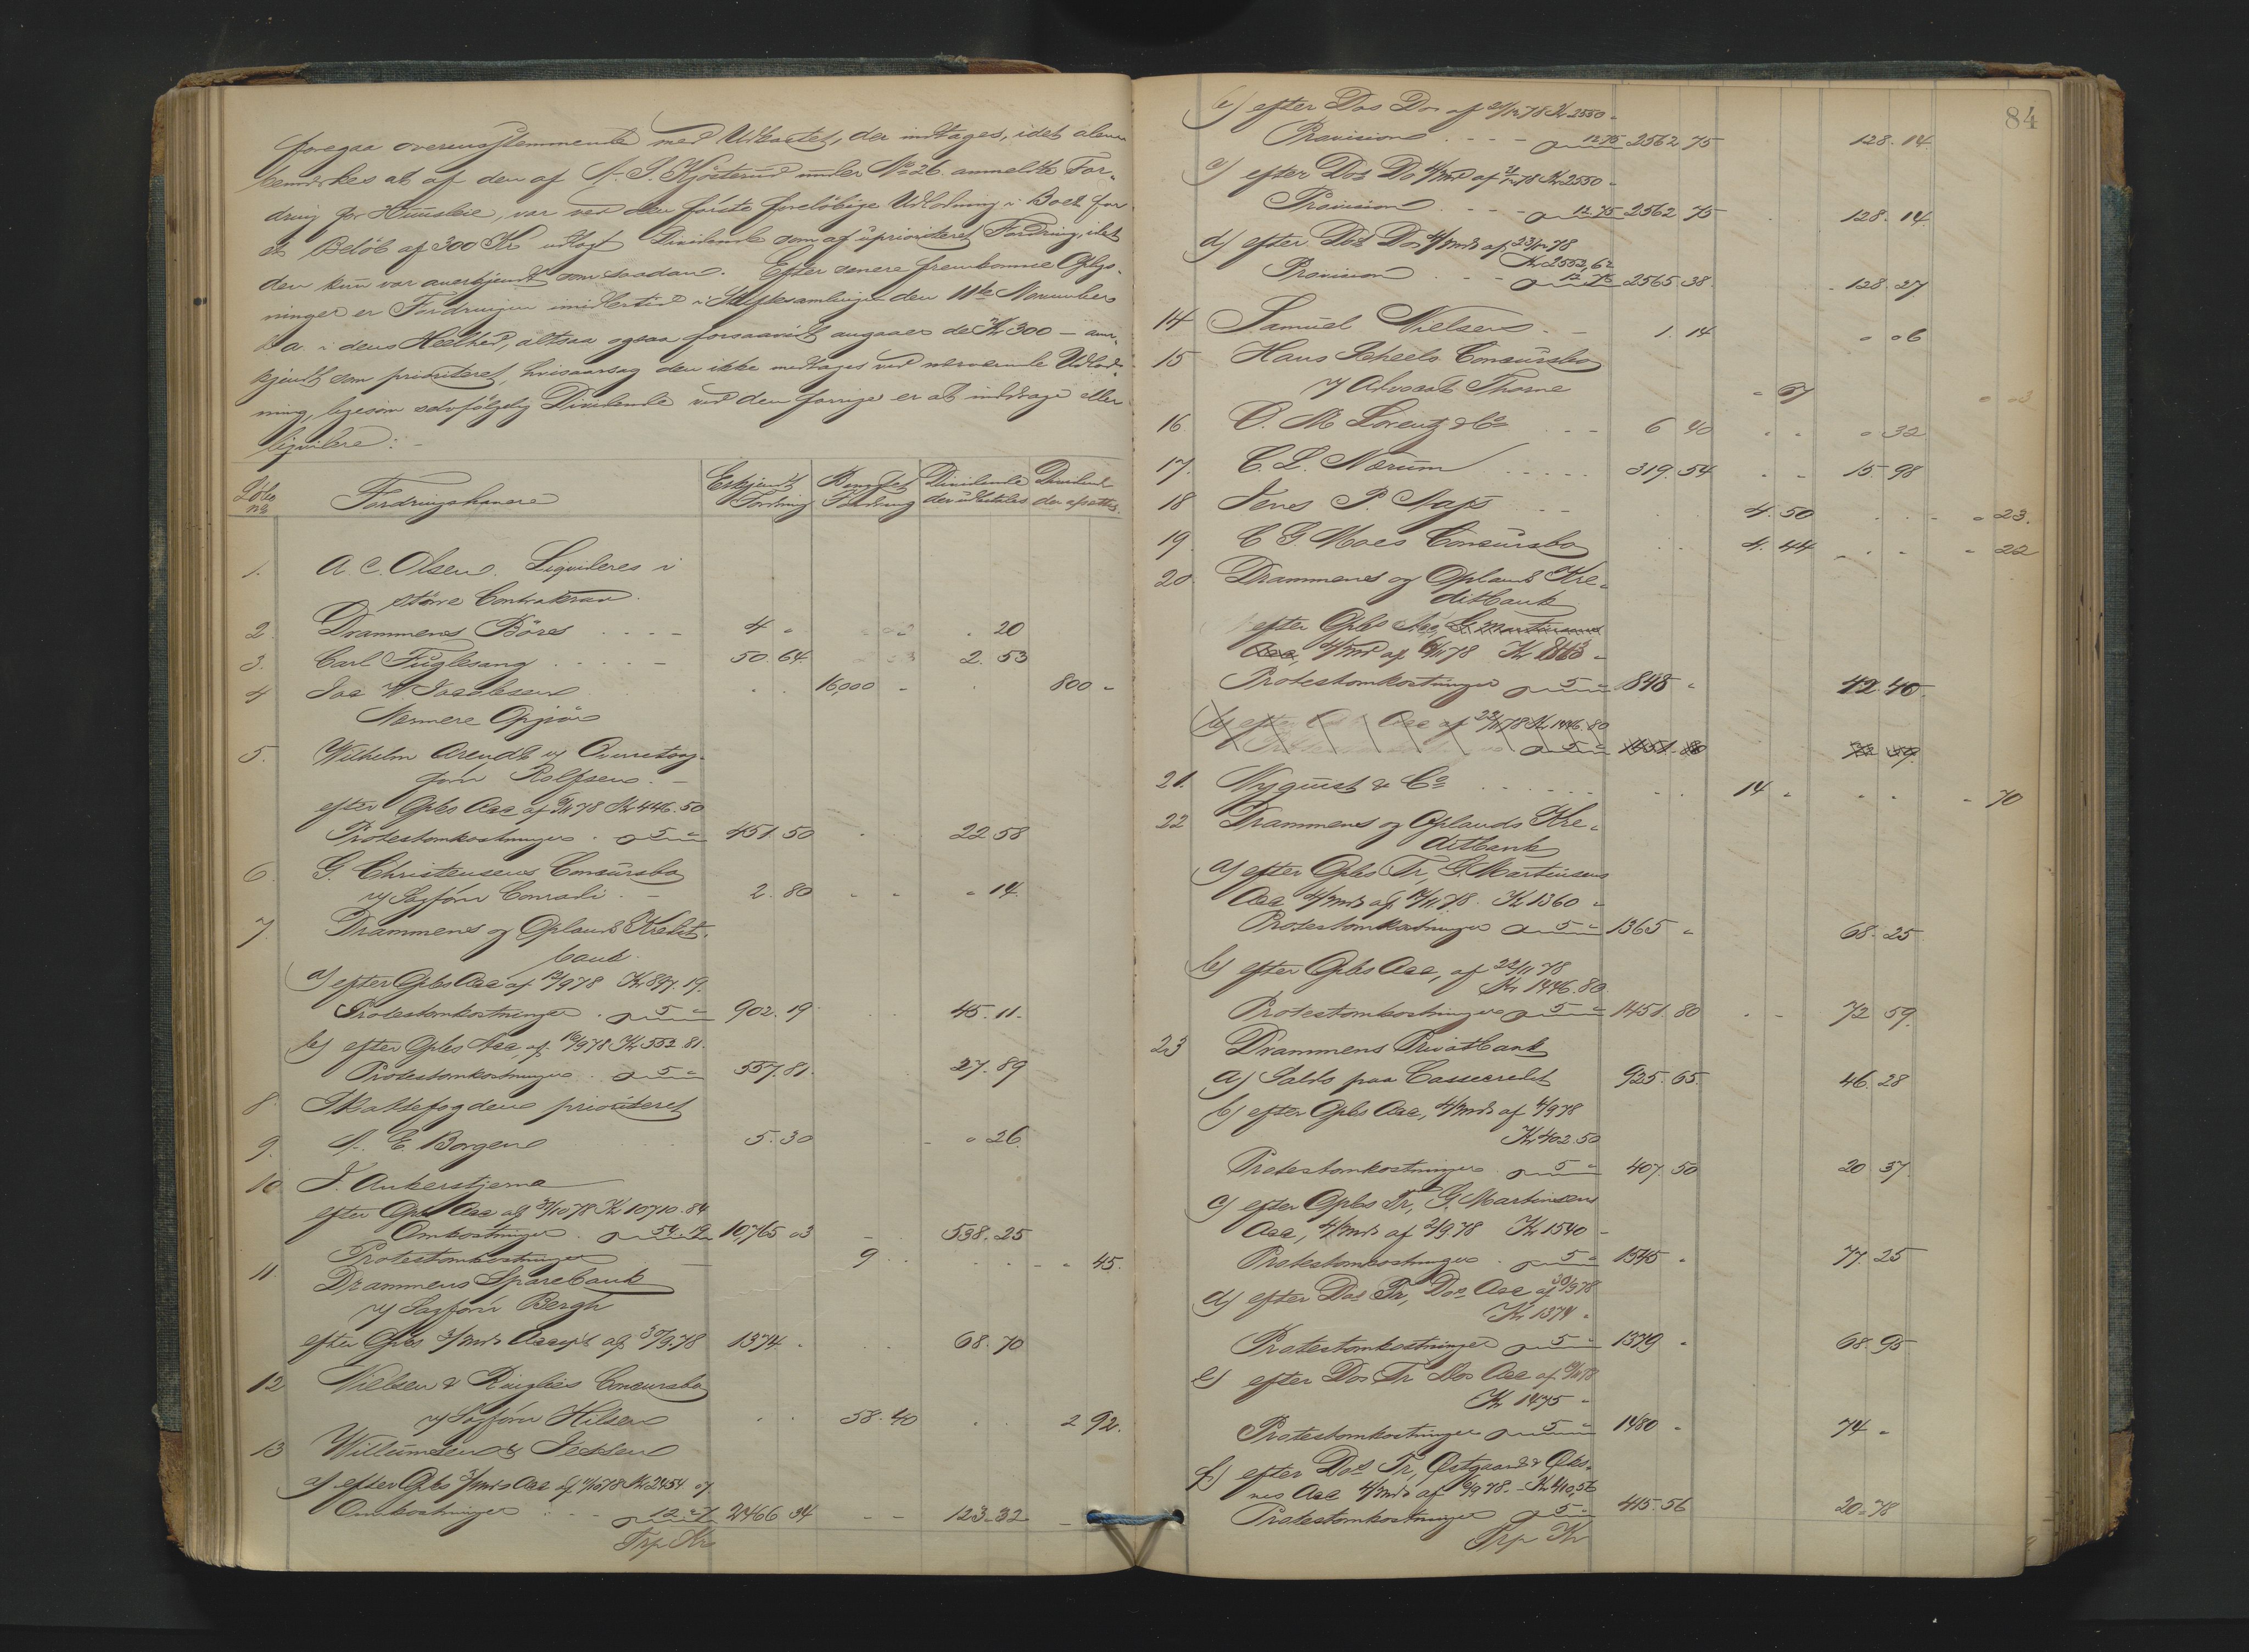 foregaa overensstemmende med Udkastet, der indtages, idet alene
bemærkes at af den af A. S. Kjösterud under No 26 anmeldte For-
dring for Huusleie, var ved den förste foreløbige Udlodning i Boet for
et Beløb af 300 Kr udlagt Dividende som af uprioriteret Fordring, idet
den kun var anerkjendt som saadan. Efter senere fremkomne Oplys-
ninger er Fordringen imidlertid i Skiftesamlingen den 11te November
d. a. i dens Heelhed, altsaa ogsaa forsaavidt angaaer de Kr 300 – aner-
kjendt som prioriteret, hvisaarsag den ikke medtages ved nærværende Udlod-
ning, ligesom selvfölgelig Dividende ved den forrige er at inddrage eller
liqvidere: -
Löbe No Fordringshavere Erkjendt Fordring Benegtet Fordring Dividende der udbetales Dividende der afsættes
1. A. C. Olsen. Liqvideres i
större Contrakrav.
2. Drammens Börs 4 - 20
3. Carl Fuglesang 50. 64. 2. 53
4 Joa Jacobsen 16,000 - 800 -
Nærmere Opgjör
5. Wilhelm Arendt v/ Overretssag-
förer Rolfsen. -
efter Gjbs Acc af 78 Kr 446. 50
Protestomkostninger 5 - 451. 50 22 58
6. G. Christensens Concursbo
v/ Sagförer Conradi - 2. 80 - 14.
7. Drammens og Oplands Kredit-
bank.
a) efter Gjbs Acc af 12/9 78 Kr 897. 19.
Protestomkostninger 5 - 902. 19 45. 11.
b) efter Gjbs Acc, af 16/9 78 Kr 552. 81.
Protestomkostninger 5 - 557. 81. 27. 89
8. Skattefogden prioriteret
9. A. E. Borgen 5. 30 - 26.
10. J. Ankerstjerne
efter Gjbs Acc af 3/10 78 Kr 10710. 84
Omkostninger 54. 19 10,765 03 538. 25
Protestomkostninger 9 - 45.
11. Drammens Sparebank
v/ Sagförer Bergh
efter Gjbs 3/mds Accept af 30/9. 78 1374 - 68. 70
12 Nielsen & Ringlies Concursbo
v/ Sagförer Hilsen 58. 40 2 92.
13 Willumsen & Jessen
a) efter Gjbs 3/mds Acc af 11/10 78 Kr 2454 07
Omkostninger 12. 27 2466 34 123. 32
Trp Kr
84
b) efter Dos Do af 78 Kr 2550 -
Provision 12.75 2562 75 128. 14
c) efter Dos Do 4/md af 78 Kr 2550 -
Provision 12.75 2562 75 128. 14.
d) efter Dos Do 4/mds af 23/ 78
Kr 2552,62
Provision 12 76 2565. 38. 128. 27
14 Samuel Nielsen 1. 14 - 06
15 Hans Scheels Concursbo
v/ Advocat Thorne - 67 - 03
16. O. M Lorentz & Co 6 40 - 32
17. C. L. Nærum 319. 54 15. 98
18 Jens P. Aass 4. 50 - 23.
19. C G. Moes Concursbo 4. 44 - 22
20. Drammens og Oplands Kre-
ditbank
efter Gjbs Acc, G. Martinsens
Acc, 4/md af 78 Kr 843 -
Protestomkostninger 5 - 848 - 42. 40.
b) efter Acc af 23/11 78 Kr 1446. 80
5 - 1451. 80 72 59.
21. Nyquist & Co 14 - - 70
22 Drammens og Oplands Kre-
ditbank
a) efter Gjbs Tr, G. Martinsens
Acc 4/mds af 14/11 78. Kr 1360 -
Protestomkostninger 5 - 1365 - 68. 25
b) efter Gjbs Acc, af 22/11 78
Kr 1446. 80
Protestomkostninger 5 - 1451. 80 72 59.
23 Drammens Privatbank
a) Saldo paa Cassecredit 925. 65. 46. 28
b) efter Gjbs Acc, 4/mds af 4/9 78
Kr 402. 50
Protestomkostninger 5 - 407. 50 20 37.
c) efter Gjbs Tr, G. Martinsens
Acc, 4/mds af 2/9 78 Kr 1540 -
Protestomkostninger 5 - 1545 - 77. 25
d) efter Dos Tr, Dos Acc af 30/9 78
Kr 1374 -
Protestomkostninger 5 - 1379 - 68. 95
e) efter Dos Tr Dos Acc af 78
Kr 1475 -
Protestomkostninger 5 - 1480 - 74 -
f) efter Dos Tr, Östgaard & Öks-
nes Acc 4/mds af 9/9 78. - Kr 410,56
Protestomkostninger 5 - 415. 56 20. 78
Trp Kr